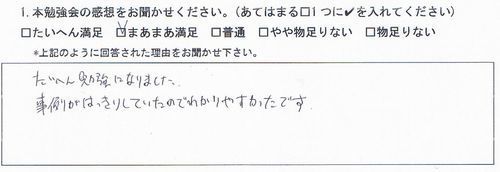 1.本勉強会の感想をお聞かせください。(あてはまる□1つに✔を入れてください)
□たいへん満足 ☑まあまあ満足 □普通 □やや物足りない □物足りない
*上記のように回答された理由をお聞かせ下さい。
たいへん勉強になりました。
事例がはっきりしていたのでわかりやすかったです